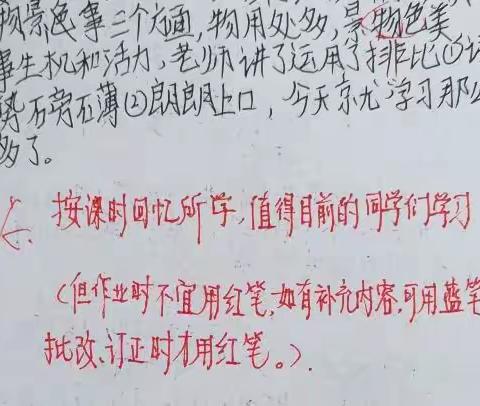 物景色事三个方面,物用处多,景物色美
事生机和活力,老师讲了运用了排比①语
势磅礴②朗朗上口,今天京尤学习那么
多了。
按课时回忆所学,值得目前的同学们学习
(但作业时不宜用红笔,如有补充内容,可用蓝笔
批改、订正时才用红笔。).